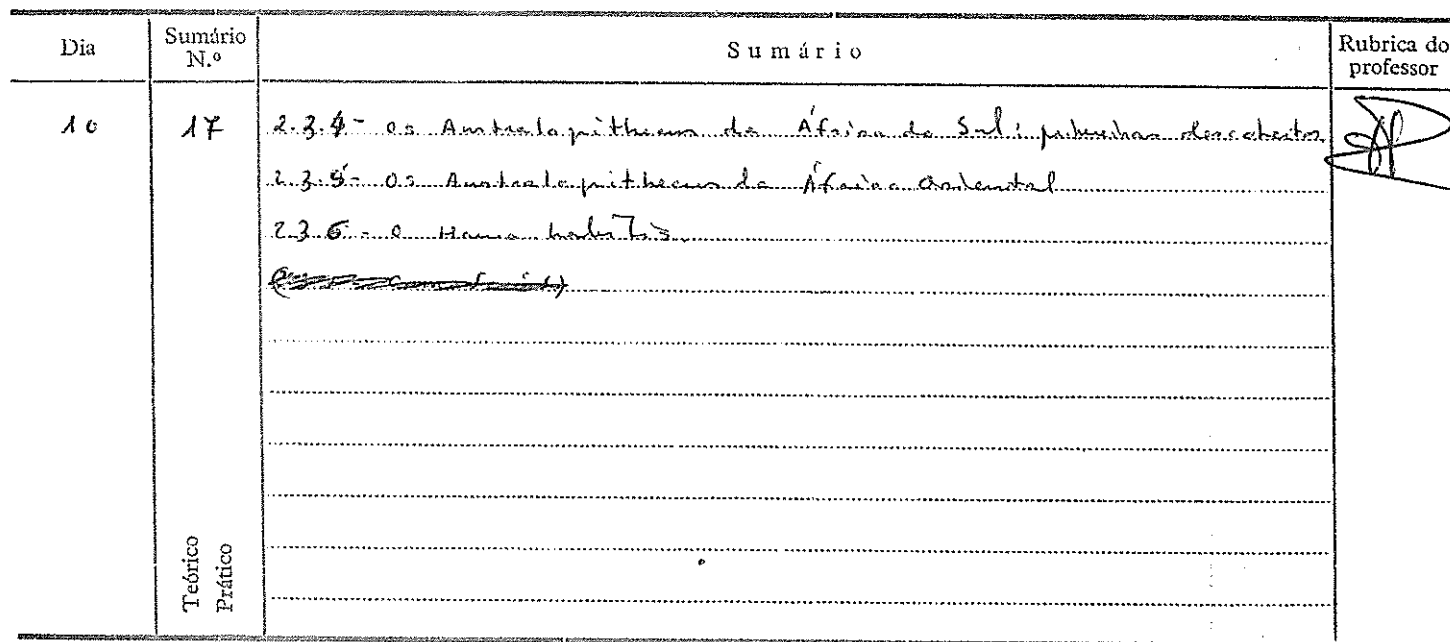 Dia
Sumário N.º
Sumário
Rubrica do professor
10
17
2.3.4- os Australopithecus da África do Sul: primeiras descobertas
2.3.5- os Australopithecus da África Oriental
2.3.6- o Homo habilis
Teórico
Prático